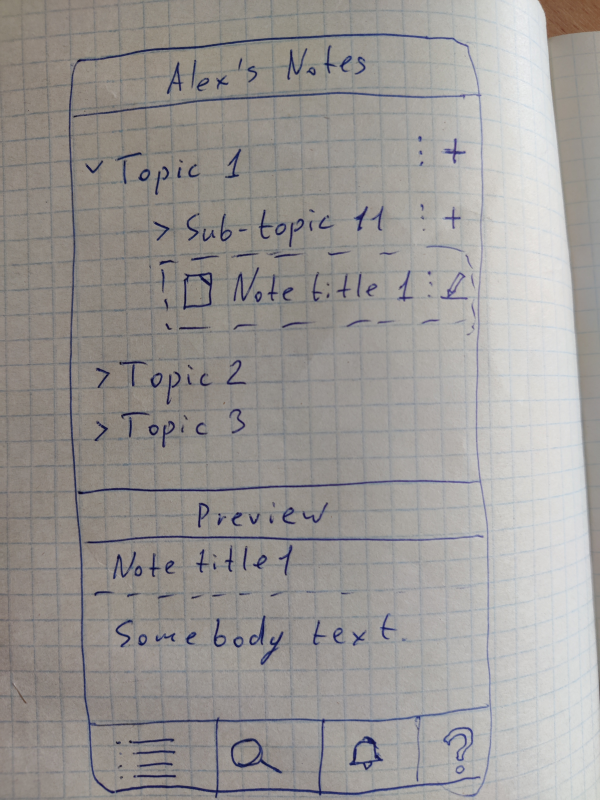 Alex's Notes
Topic 1 ⋮ +
Sub-topic 11 ⋮ +
Note title 1 ⋮
Topic 2
Topic 3
Preview
Note title 1
Some body text.
?